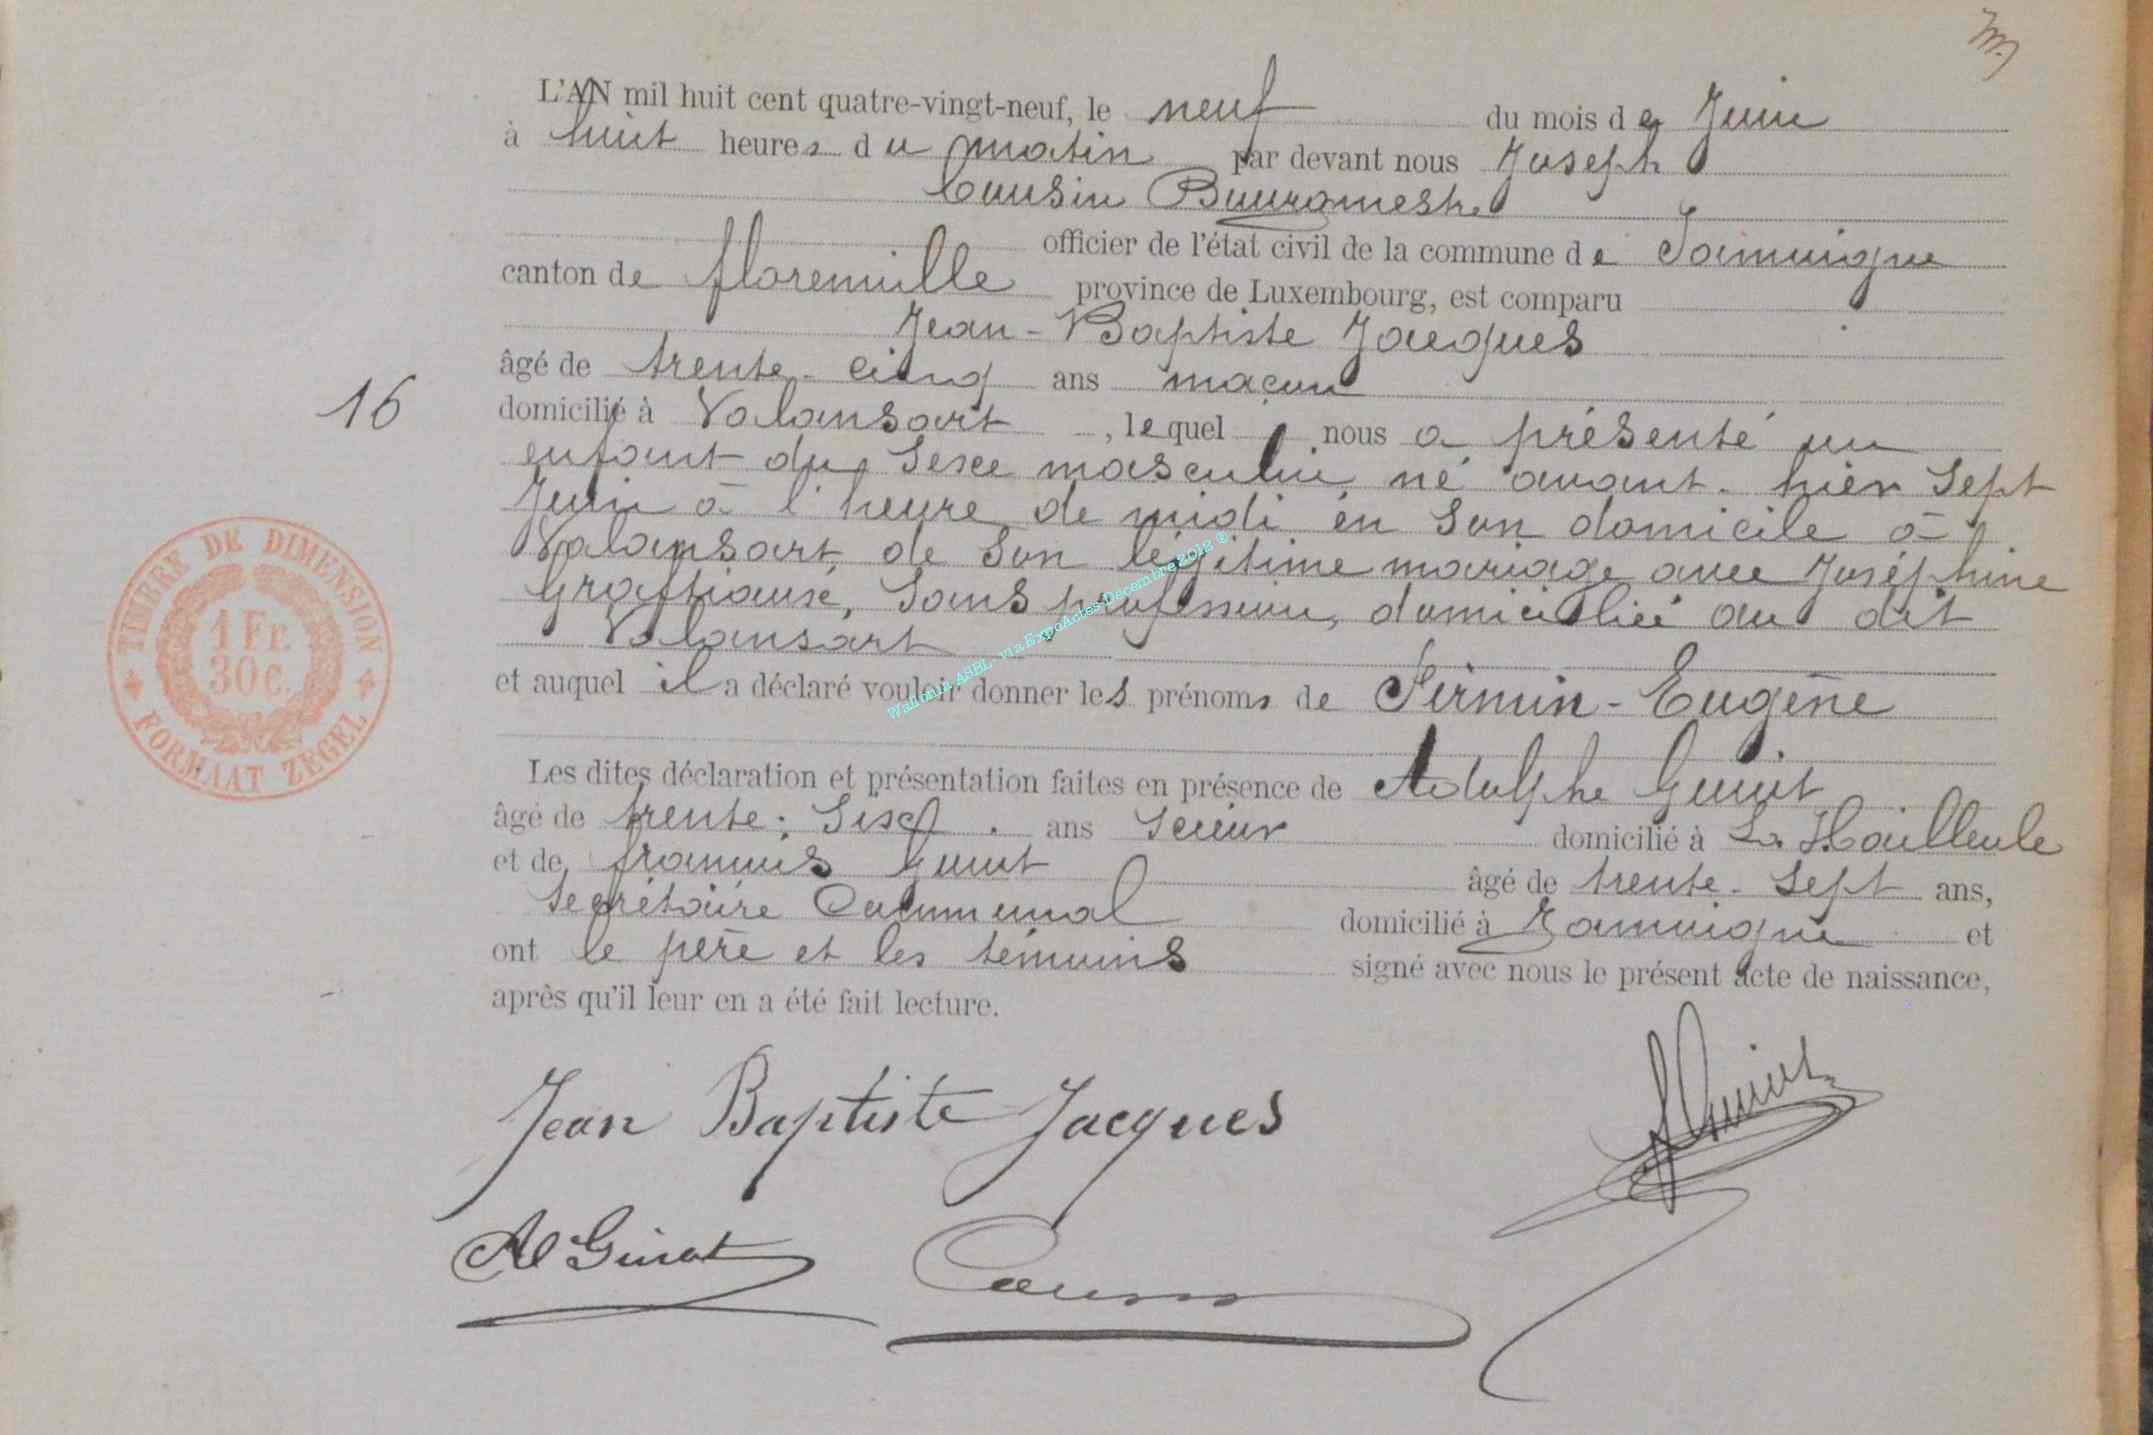 L'AN mil huit cent quatre-vingt-neuf, le neuf du mois de Juin
à huit heures du matin par devant nous Joseph
Cousin Bourgmestre
officier de l'état civil de la commune de Jamoigne
canton de florenville province de Luxembourg, est comparu
Jean-Baptiste Jacques
âgé de trente-cinq ans maçon
16
domicilié à Valansart, lequel nous a présenté un
enfant du Sexe masculin, né avant-hier Sept
Juin à l'heure de midi en Son domicile à
Valansart, de Son légitime mariage avec Joséphine
Sans profession, domiciliée au dit
Valansart
et auquel il a déclaré vouloir donner les prénoms de Firmin-Eugène
Les dites déclaration et présentation faites en présence de Adolphe Guiot
âgé de trente-Six ans Scieur domicilié à La Hailleule
et de françois Guiot âgé de trente-Sept ans,
Secrétaire Communal domicilié à Jamoigne et
ont le père et les témoins signé avec nous le présent acte de naissance,
après qu'il leur en a été fait lecture.
Jean Baptiste Jacques
Ad Guiot
Cousin
TIMBRE DE DIMENSION
1 Fr.
30 c.
FORMAAT ZEGEL
Wallonia ASBL - via ExpoActes Décembre 2012 ©